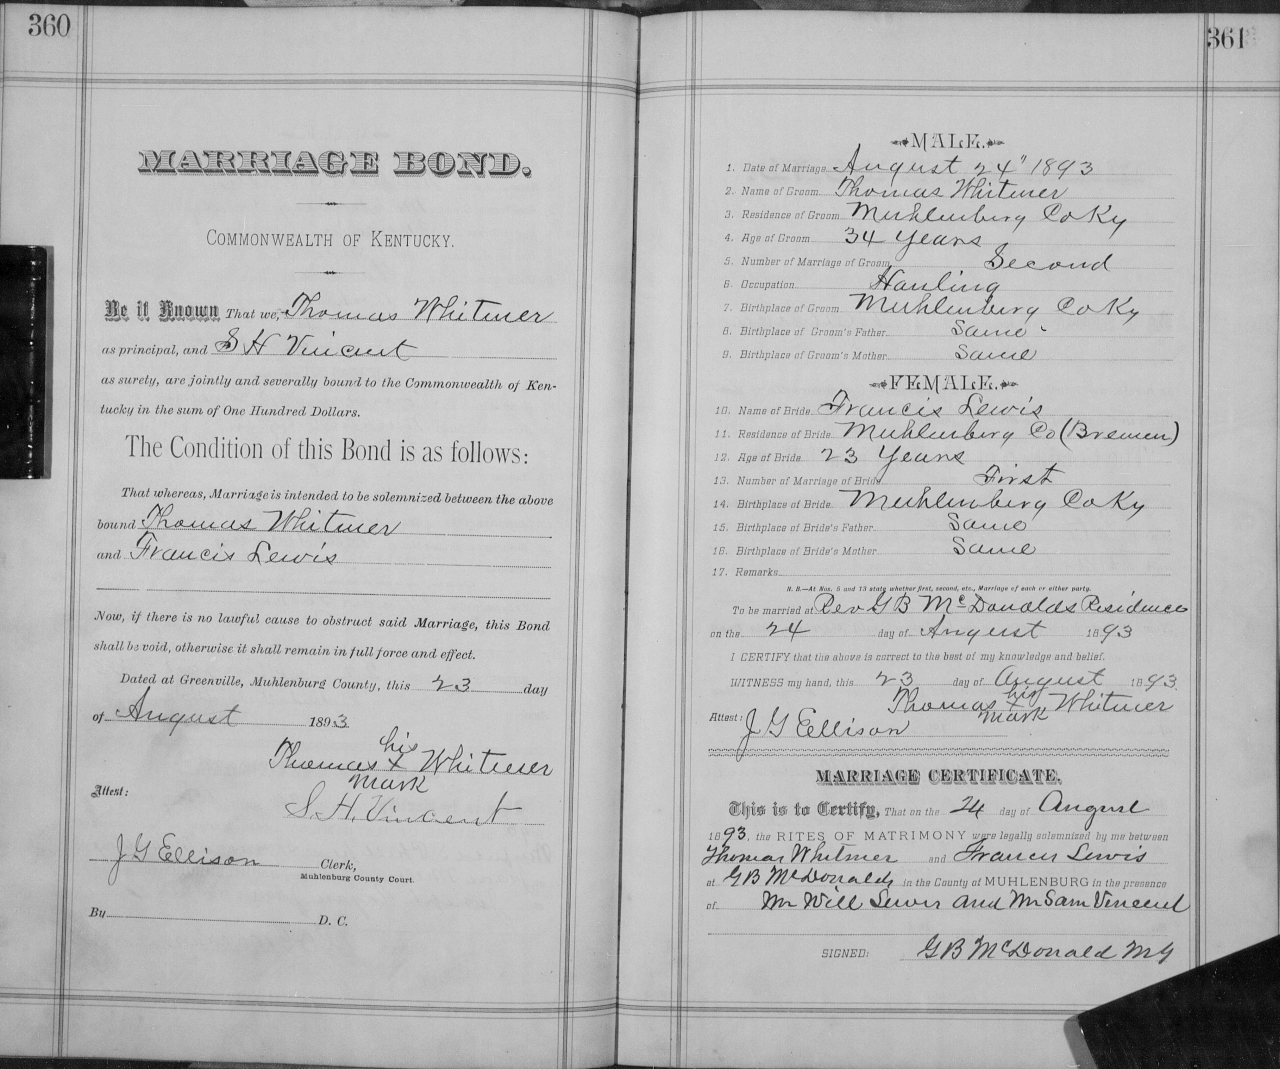 360
MARRIAGE BOND.
COMMONWEALTH OF KENTUCKY.
Be it Known That we, Thomas Whitmer
as principal, and S H Vincent
as surety, are jointly and severally bound to the Commonwealth of Ken-
tucky in the sum of One Hundred Dollars.
The Condition of this Bond is as follows:
That whereas, Marriage is intended to be solemnized between the above
bound Thomas Whitmer
and Francis Lewis
Now, if there is no lawful cause to obstruct said Marriage, this Bond
shall be void, otherwise it shall remain in full force and effect.
Dated at Greenville, Muhlenburg County, this 23 day
of August 1893
his
Thomas x Whitmer
mark
Attest:
S. H. Vincent
J G Ellison Clerk,
Muhlenburg County Court.
By D. C.
361
MALE.
1. Date of Marriage August 24" 1893
2. Name of Groom Thomas Whitmer
3. Residence of Groom Muhlenburg Co Ky
4. Age of Groom 34 Years
5. Number of Marriage of Groom Second
6. Occupation Hauling
7. Birthplace of Groom Muhlenburg Co Ky
8. Birthplace of Groom's Father Same
9. Birthplace of Groom's Mother Same
FEMALE.
10. Name of Bride Francis Lewis
11. Residence of Bride Muhlenburg Co (Bremen)
12. Age of Bride 23 Years
13. Number of Marriage of Bride First
14. Birthplace of Bride Muhlenburg Co Ky
15. Birthplace of Bride's Father Same
16. Birthplace of Bride's Mother Same
17. Remarks
N. B.—At Nos. 5 and 13 state whether first, second, etc., Marriage of each or either party.
To be married at Rev G B McDonalds Residence
on the 24 day of August 1893
I CERTIFY that the above is correct to the best of my knowledge and belief.
WITNESS my hand, this 23 day of August 1893
his
Thomas x Whitmer
mark
Attest: J G Ellison
MARRIAGE CERTIFICATE.
This is to Certify, That on the 24 day of August
1893, the RITES OF MATRIMONY were legally solemnized by me between
Thomas Whitmer and Francis Lewis
at G B McDonalds in the County of MUHLENBURG in the presence
of Mr Will Lewis and Mr Sam Vincent
SIGNED: G B McDonald M G